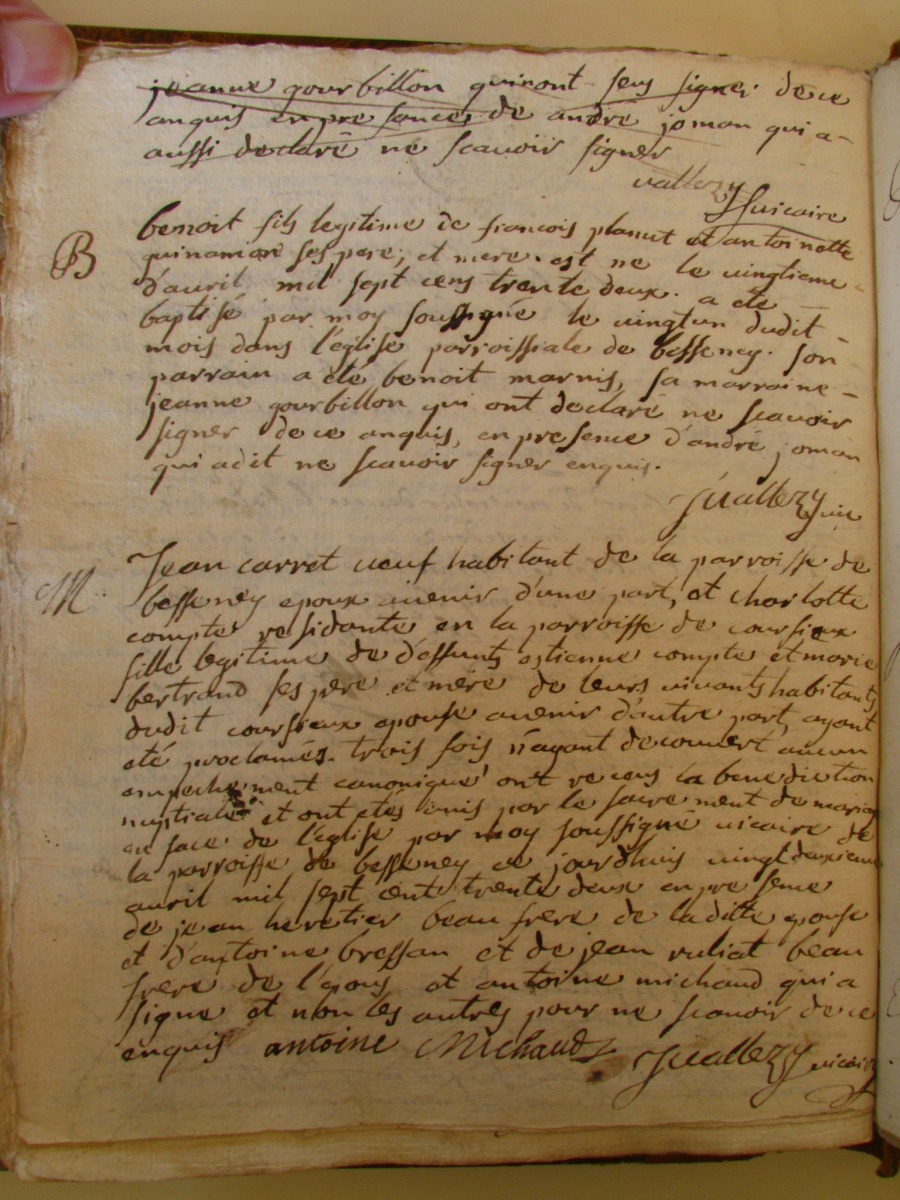 jeanne gourbillon qui n'ont sceu signer de ce
anquis en presences de andré joman qui a
aussi declaré ne scavoir signer
vallezy
vicaire
B
benoit fils legitime de francois planut et antoinette
quinamon ses pere, et mere. est ne le vingtieme
d'avril mil sept cens trente deux. a été
baptisé par moy soussigné le vingtun dudit
mois dans l'église parroissiale de besseney. son
parrain a été benoit marnis, sa marraine
jeanne gourbillon qui ont declaré ne scavoir
signer de ce anquis, en presence d'andré joman
qui a dit ne scavoir signer enquis.
Jvallezy vic
M
Jean carret veuf habitant de la parroisse de
besseney epoux avenir d'une part, et charlotte
compte residante en la parroisse de coursieux
fille legitime de deffunts estienne compte et marie
bertrand ses pere et mére de leurs vivants habitants
dudit coursieux epouse avenir d'autre part, ayant
eté proclamés trois fois n'ayant decouvert aucun
empechement canonique ont receus la benediction
nuptiale et ont etés unis par le sacrement de mariage
en face de l'église par moy soussigné vicaire de
la parroisse de besseney ce jourdhuis vingtdeuxieme
avril mil sept cent trente deux en presence
de jean heretier beau frere de la ditte epouse
et d'antoine bressan et de jean ruliat beau
frere de l'epous et antoine michaud qui a
signe et non les autres pour ne scavoir de ce
enquis antoine Michaud
Jvallezy vicaire